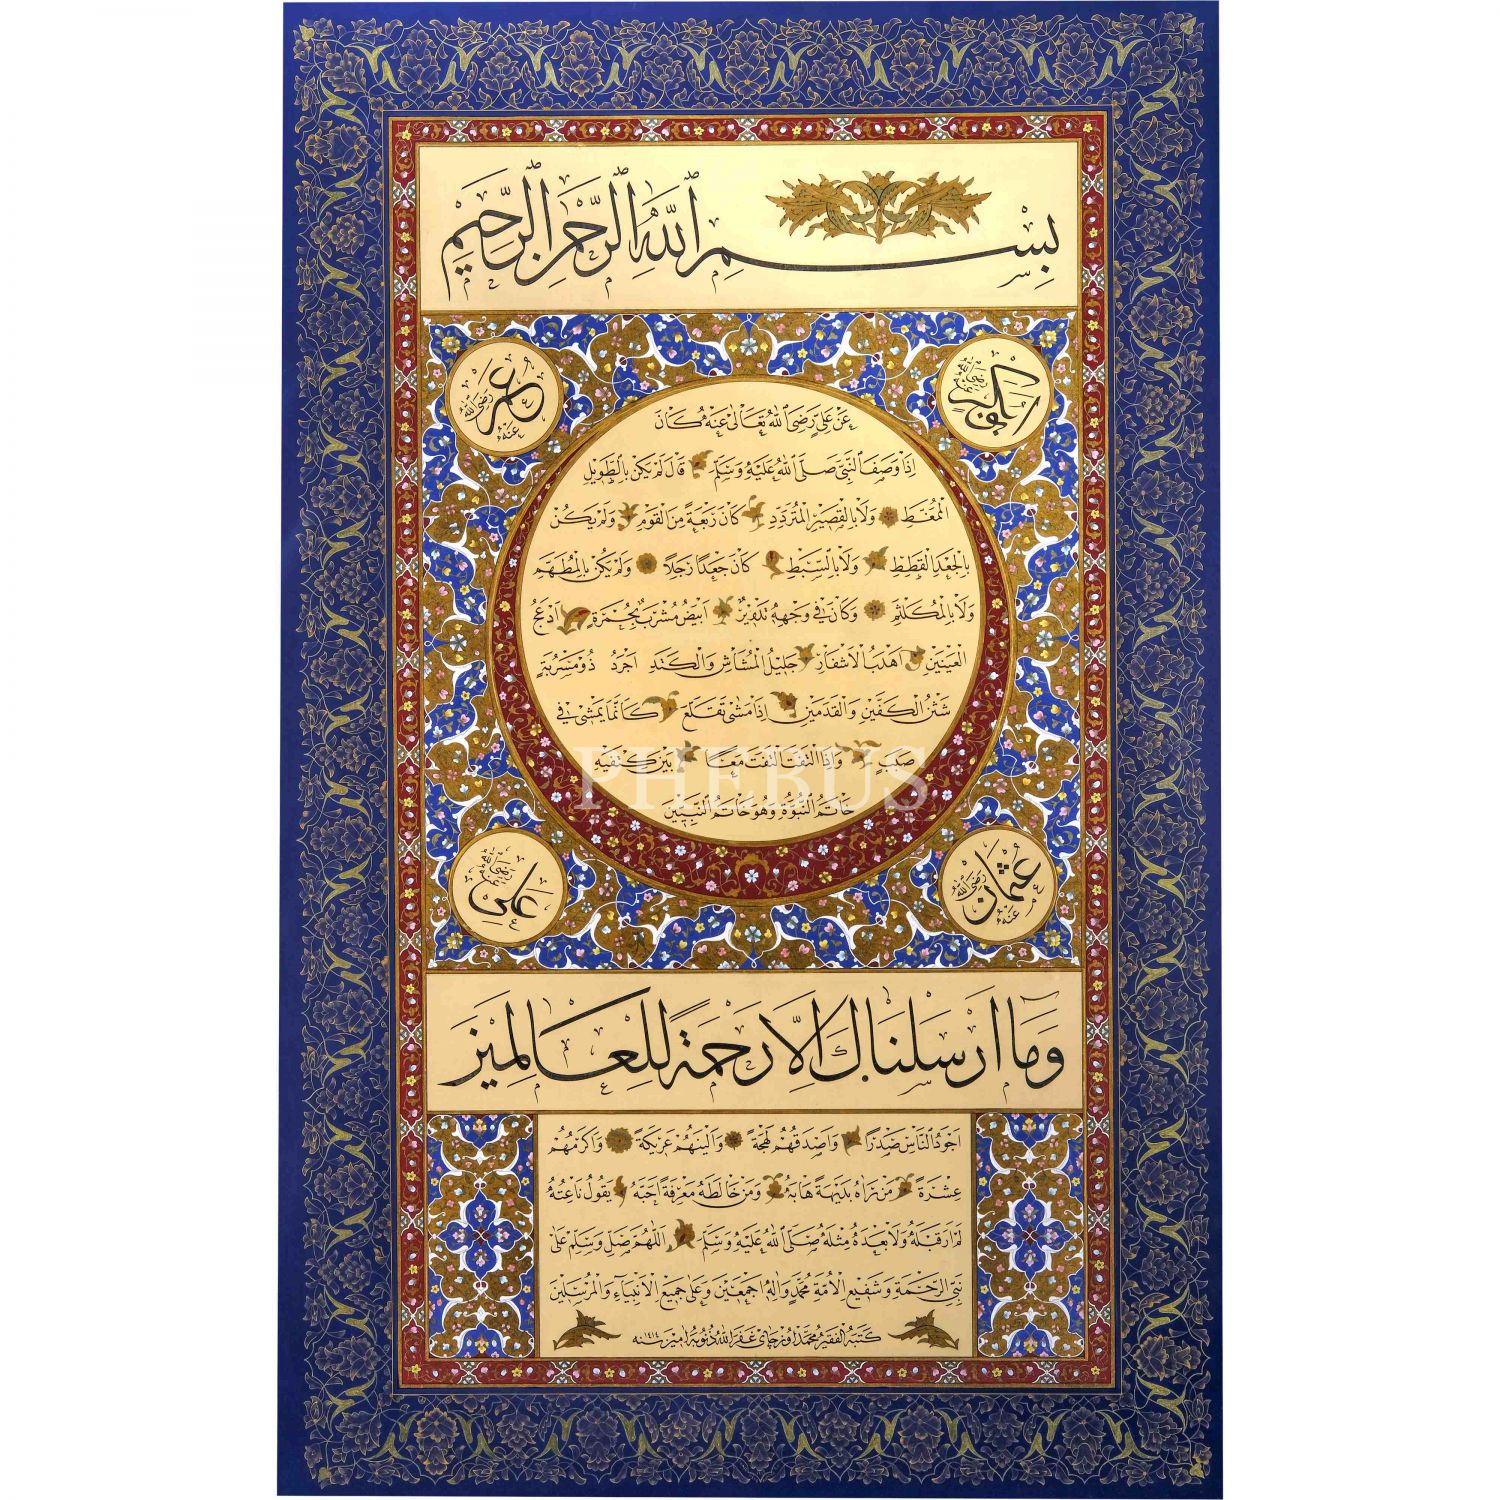 بِسْمِ ٱللّٰهِ ٱلرَّحْمٰنِ ٱلرَّحِيمِ
ابوبكر رَضِيَ ٱللّٰهُ عَنْهُ
عُمَر رَضِيَ ٱللّٰهُ عَنْهُ
عَنْ عَلِيٍّ رَضِيَ ٱللّٰهُ تَعَالٰى عَنْهُ كَانَ
اِذَا وَصَفَ النَّبِيَّ صَلَّى ٱللّٰهُ عَلَيْهِ وَسَلَّمَ قَالَ لَمْ يَكُنْ بِالطَّوِيلِ
الْمُمَّغِطِ وَلَا بِالْقَصِيرِ الْمُتَرَدِّدِ كَانَ رَبْعَةً مِنَ الْقَوْمِ وَلَمْ يَكُنْ
بِالْجَعْدِ الْقَطِطِ وَلَا بِالسَّبْطِ كَانَ جَعْدًا رَجِلًا وَلَمْ يَكُنْ بِالْمُطَهَّمِ
وَلَا بِالْمُكَلْثَمِ وَكَانَ فِي وَجْهِهِ تَدْوِيرٌ اَبْيَضُ مُشْرَبٌ بِحُمْرَةٍ اَدْعَجُ
الْعَيْنَيْنِ اَهْدَبُ الْاَشْفَارِ جَلِيلُ الْمُشَاشِ وَالْكَتَدِ اَجْرَدُ ذُو مَسْرُبَةٍ
شَثْنُ الْكَفَّيْنِ وَالْقَدَمَيْنِ اِذَا مَشٰى تَقَلَّعَ كَاَنَّمَا يَمْشِي فِي
صَبَبٍ وَاِذَا الْتَفَتَ الْتَفَتَ مَعًا بَيْنَ كَتِفَيْهِ
خَاتَمُ النُّبُوَّةِ وَهُوَ خَاتَمُ النَّبِيِّينَ
PHEBUS
عُثْمَان رَضِيَ ٱللّٰهُ عَنْهُ
عَلِي رَضِيَ ٱللّٰهُ عَنْهُ
وَمَا اَرْسَلْنَاكَ اِلَّا رَحْمَةً لِلْعَالَمِينَ
اَجْوَدُ النَّاسِ صَدْرًا وَاَصْدَقُهُمْ لَهْجَةً وَاَلْيَنُهُمْ عَرِيكَةً وَاَكْرَمُهُمْ
عِشْرَةً مَنْ رَاٰهُ بَدِيهَةً هَابَهُ وَمَنْ خَالَطَهُ مَعْرِفَةً اَحَبَّهُ يَقُولُ نَاعِتُهُ
لَمْ اَرَ قَبْلَهُ وَلَا بَعْدَهُ مِثْلَهُ صَلَّى ٱللّٰهُ عَلَيْهِ وَسَلَّمَ اَللّٰهُمَّ صَلِّ وَسَلِّمْ عَلٰى
نَبِيِّ الرَّحْمَةِ وَشَفِيعِ الْاُمَّةِ مُحَمَّدٍ وَاٰلِهِ اَجْمَعِينَ وَعَلٰى جَمِيعِ الْاَنْبِيَاءِ وَالْمُرْسَلِينَ
كَتَبَهُ الْفَقِيرُ مُحَمَّد اوزچاى غَفَرَ ٱللّٰهُ ذُنُوبَهُ اٰمِين سنه ١٤١٤